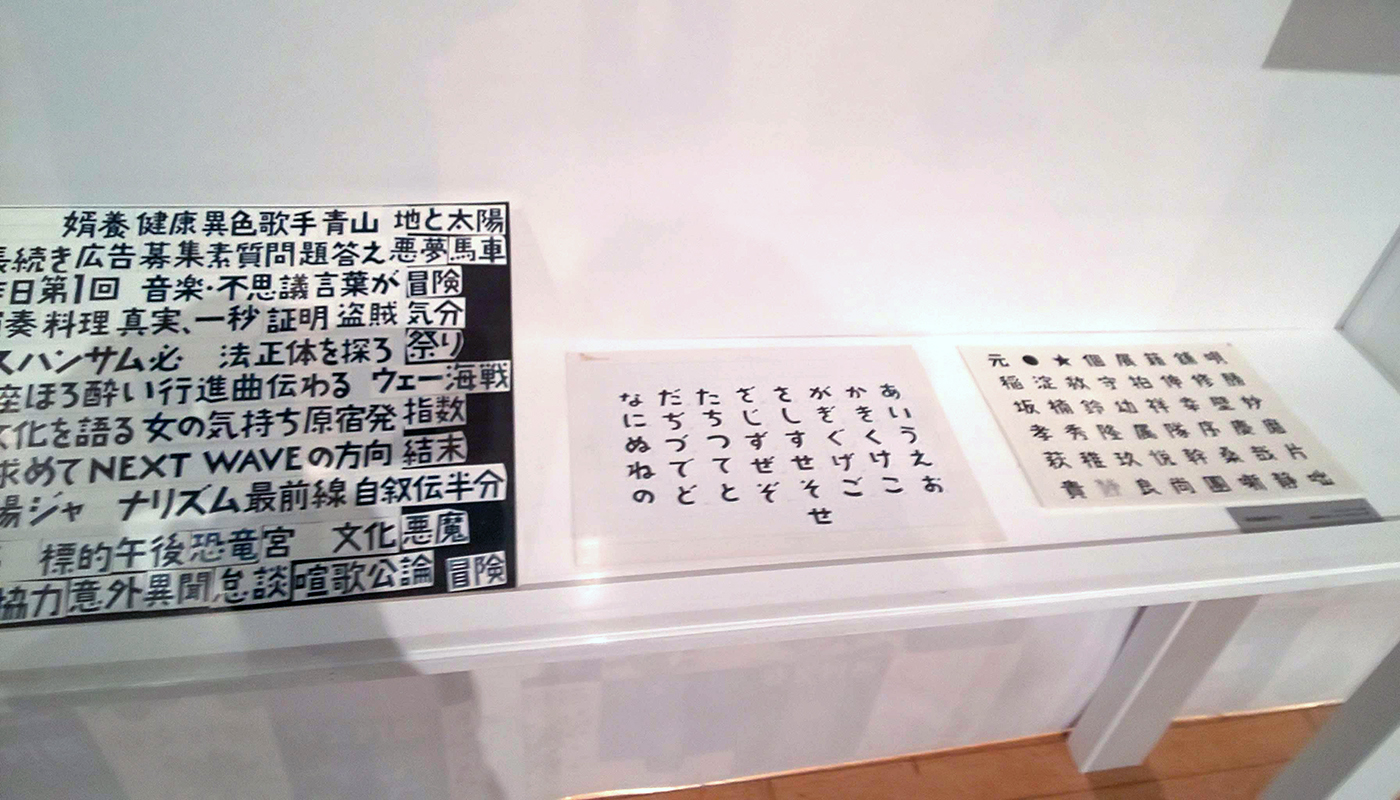 婿養 健康 異色歌手 青山 地と太陽
続き 広告 募集 素質 問題 答え 悪夢 馬車
日 第1回 音楽・不思議 言葉が 冒険
奏 料理 真実、一秒 証明 盗賊 気分
スハンサム必 法正体を探ろ 祭り
座ほろ酔い 行進曲 伝わる ウェー海戦
文化を語る 女の気持ち 原宿発 指数
求めて NEXT WAVEの方向 結末
ジャ ナリズム 最前線 自叙伝 半分
標的 午後 恐竜 宮 文化 悪魔
協力 意外 異聞 怠談 喧歌 公論 冒険
あいうえお
かきくけこ
がぎぐげご
さしすせそせ
ざじずぜぞ
たちつてと
だぢづでど
なにぬねの
元●★個展籍鋳唄
稲淀救守祐伸修勝
坂楠鈴幼祥幸聖紗
孝秀隆属隊序慶
萩稚玖悦幹桑哉片
貴 良尚團噺静咄